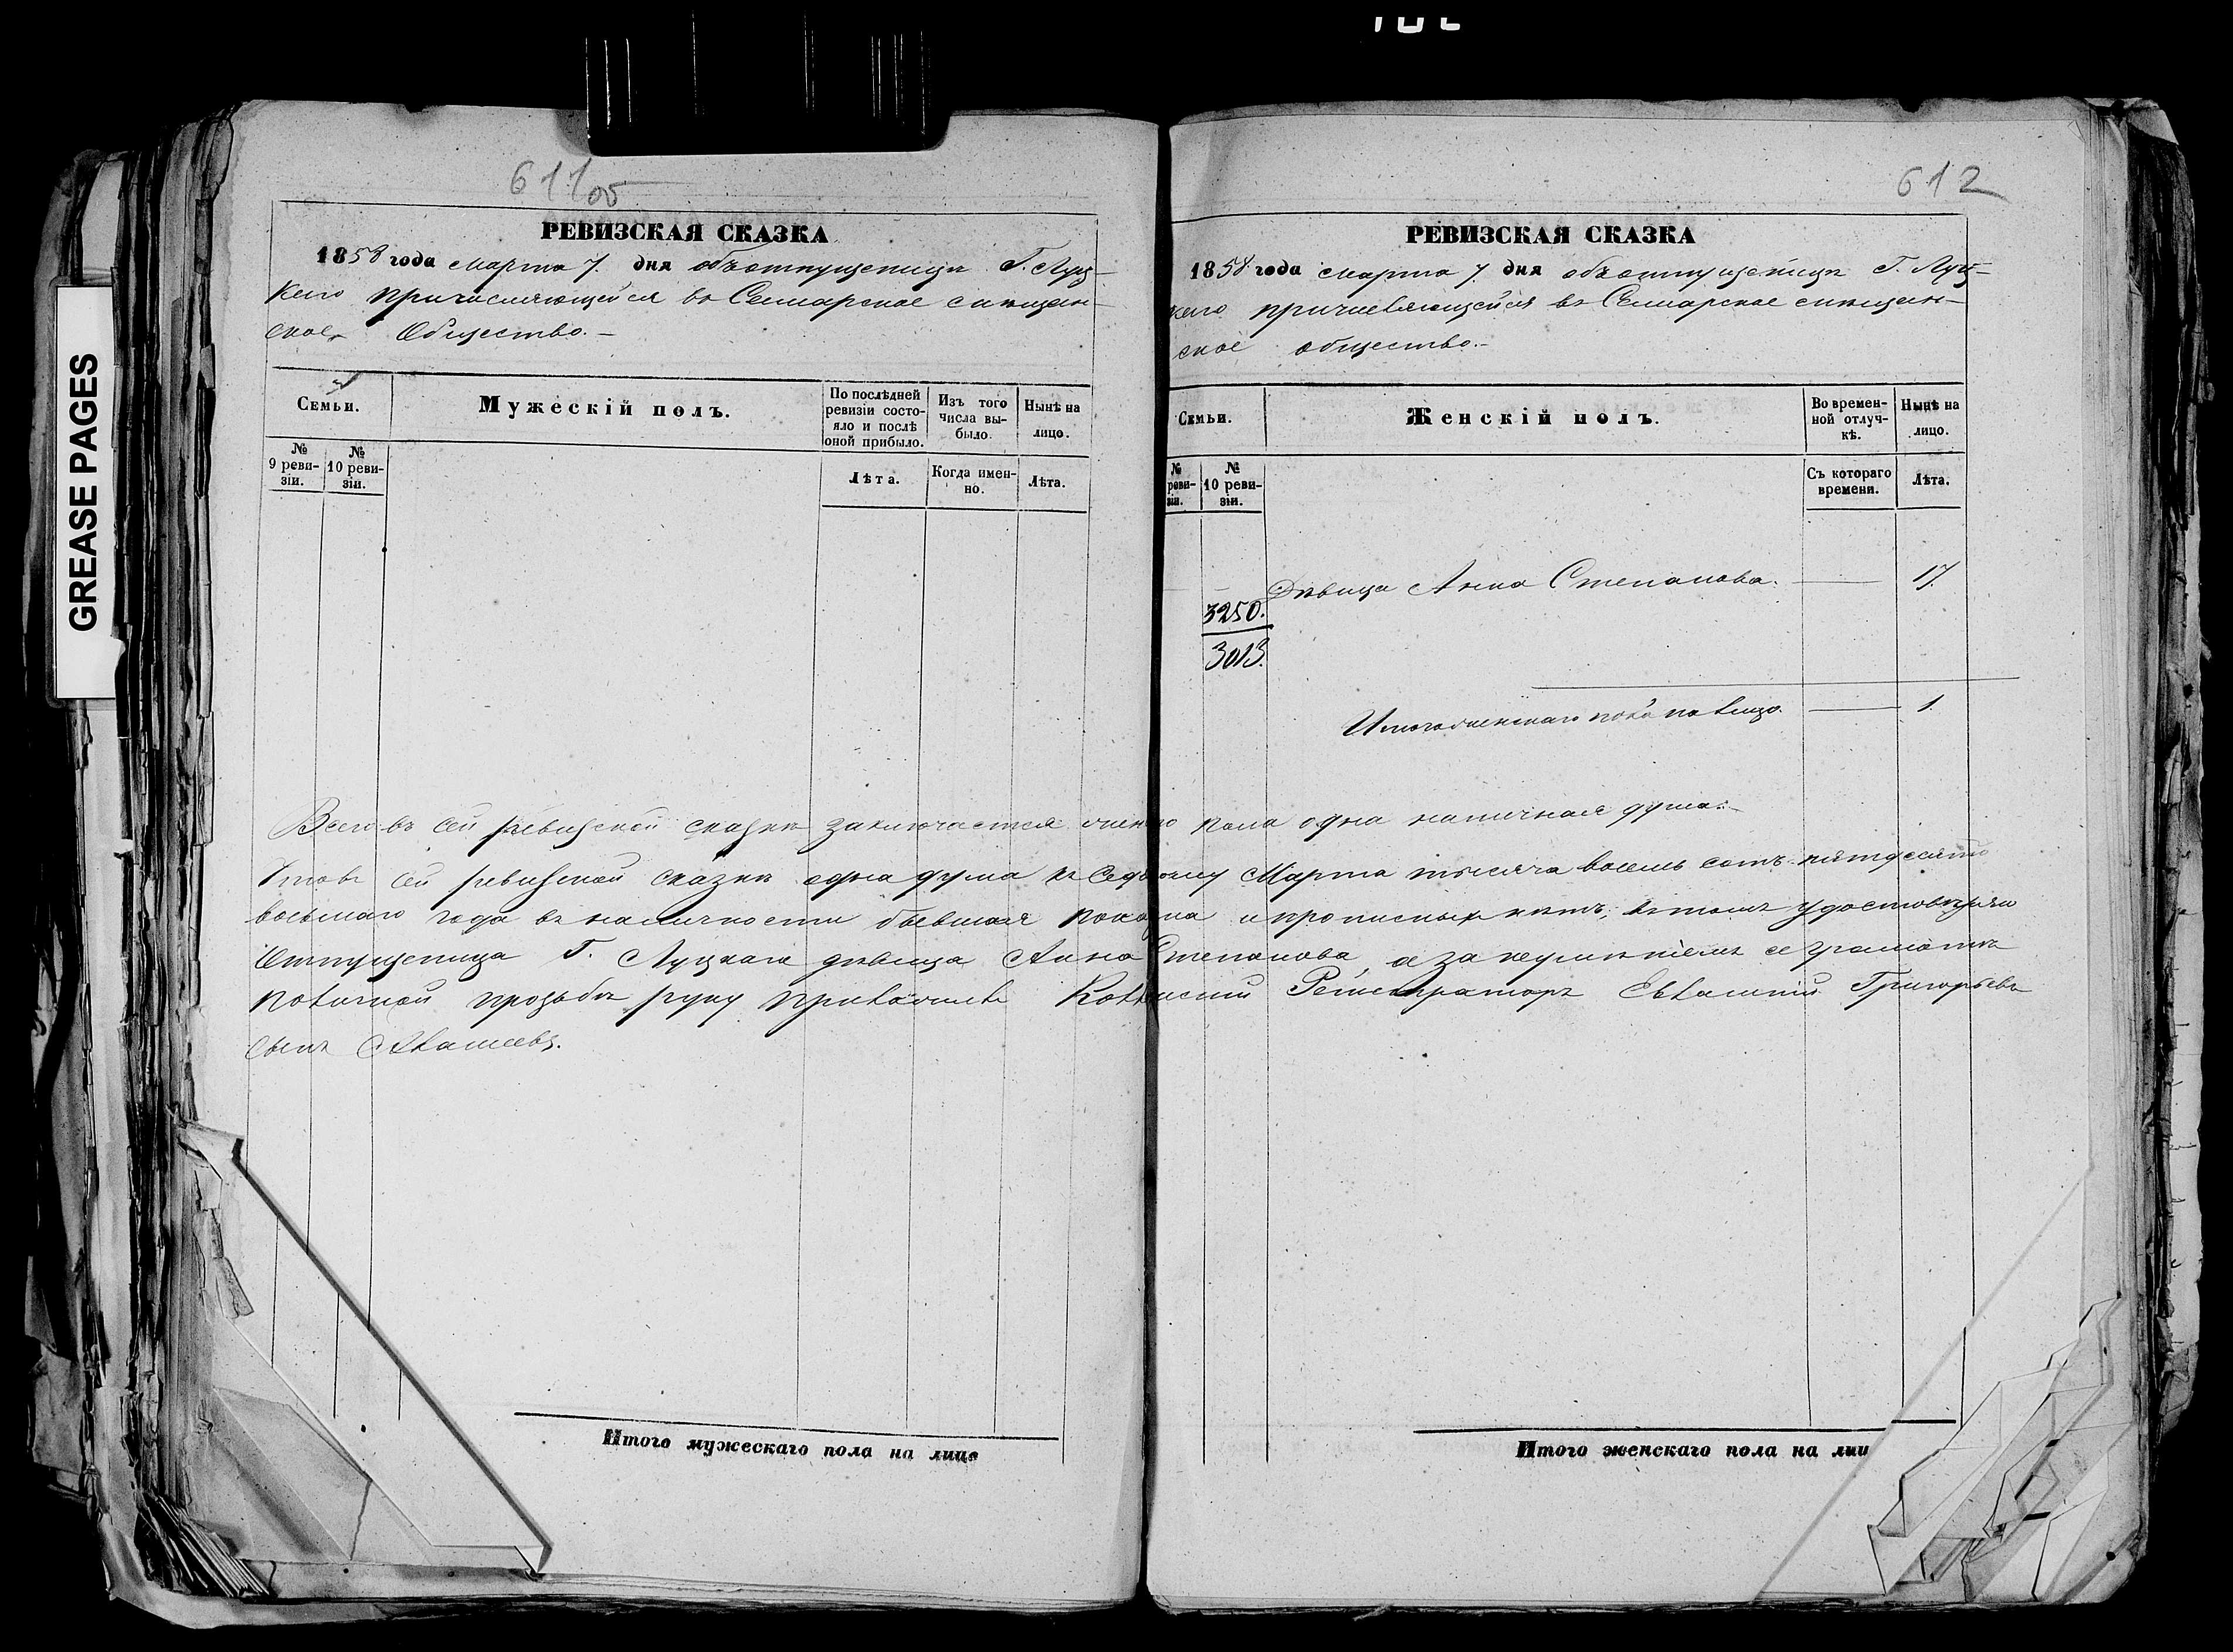 GREASE PAGES
611
РЕВИЗСКАЯ СКАЗКА
1858 года марта 7. дня объ отпущеницѣ Г. Луц-
каго причисляющейся въ Самарское мѣщан-
ское Общество.-
Семьи.
Мужескій полъ.
По послѣдней ревизіи состояло и послѣ оной прибыло.
Изъ того числа выбыло.
Нынѣ на лицо.
№ 9 ревизіи.
№ 10 ревизіи.
Лѣта.
Когда именно.
Лѣта.
Итого мужескаго пола на лицо
612
РЕВИЗСКАЯ СКАЗКА
1858 года марта 7 дня объ отпущеницѣ Г. Луц-
каго причисляющейся въ Самарское мѣщан-
ское общество.-
Семьи.
Женскій полъ.
Во временной отлучкѣ.
Нынѣ на лицо.
№ ревизіи.
№ 10 ревизіи.
Съ котораго времени.
Лѣта.
Дѣвица Анна Степанова. — 17.
3250.
3013.
Итого женскаго пола на лицо. — 1.
Всего въ сей ревизской сказкѣ заключается женско пола одна наличная душа.-
Что въ сей ревизской сказкѣ одна душа къ седьмому Марта тысяча восемь сотъ пятдесятъ
восьмаго года въ наличности бывшая показана и прописныхъ нѣтъ, въ томъ удостовѣряю
Отпущеница Г. Луцкаго дѣвица Анна Степанова, а за неумѣніемъ ее грамотѣ
по личной прозьбѣ руку приложилъ Регистраторъ Григорьевъ
сынъ
Итого женскаго пола на лиц